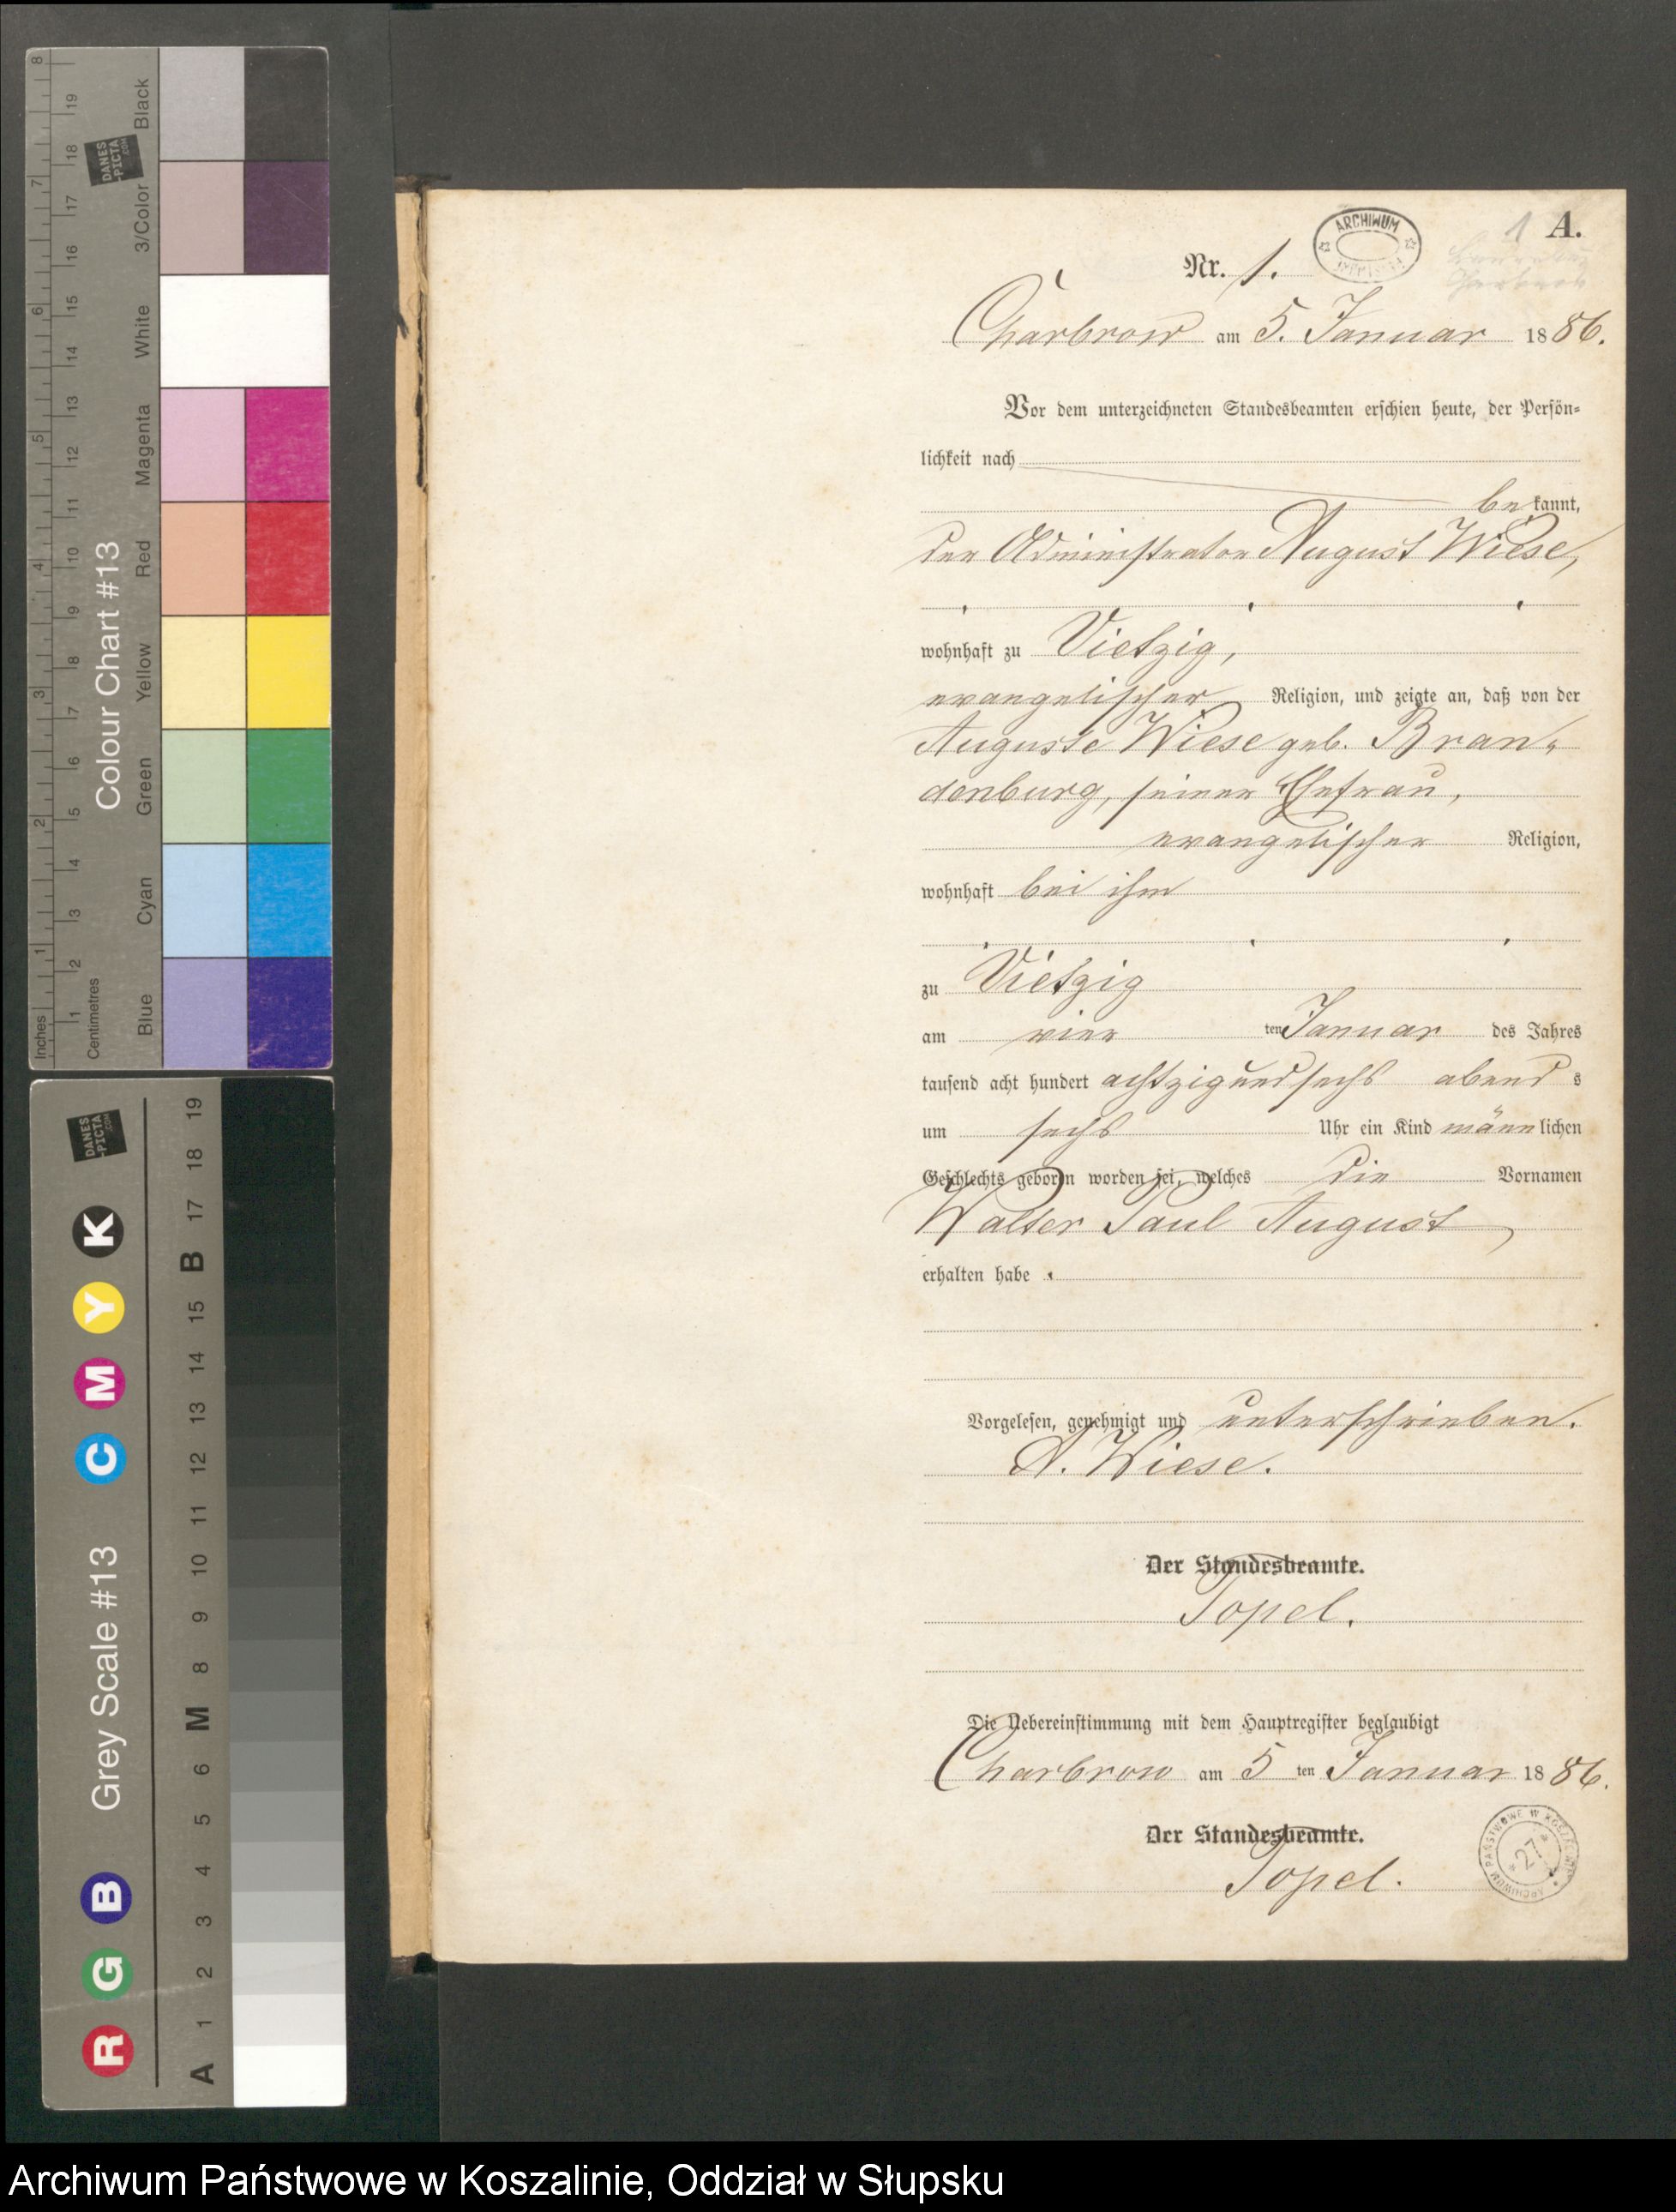 8
7
6
5
4
3
2
1
Inches
19
18
17
16
15
14
13
12
11
10
9
8
7
6
5
4
3
2
1
Centimetres
DANES
-PICTA
.COM
Colour Chart #13
Black
3/Color
White
Magenta
Red
Yellow
Green
Cyan
Blue
DANES
-PICTA
.COM
Grey Scale #13
R G B C M Y K
19
18
17
B
15
14
13
12
11
10
9
8
M
6
5
4
3
2
1
A
1 A.
ARCHIWUM
Nr. 1.
Charbrow am 5. Januar 1886.
Vor dem unterzeichneten Standesbeamten erschien heute, der Persön-
lichkeit nach
bekannt,
der Administrator August Wiese,
wohnhaft zu Vietzig,
evangelischer Religion, und zeigte an, daß von der
Auguste Wiese geb. Bran-
denburg, seiner Ehefrau,
evangelischer Religion,
wohnhaft bei ihm
zu Vietzig
am vier ten Januar des Jahres
tausend acht hundert achtzig und sechs abend s
um sechs Uhr ein Kind männlichen
Geschlechts geboren worden sei, welches die Vornamen
Walter Paul August
erhalten habe.
Vorgelesen, genehmigt und unterschrieben.
A. Wiese.
Der Standesbeamte.
Topel.
Die Uebereinstimmung mit dem Hauptregister beglaubigt
Charbrow am 5 ten Januar 1886.
Der Standesbeamte.
Topel.
ARCHIWUM PAŃSTWOWE W
* 27 *
Archiwum Państwowe w Koszalinie, Oddział w Słupsku